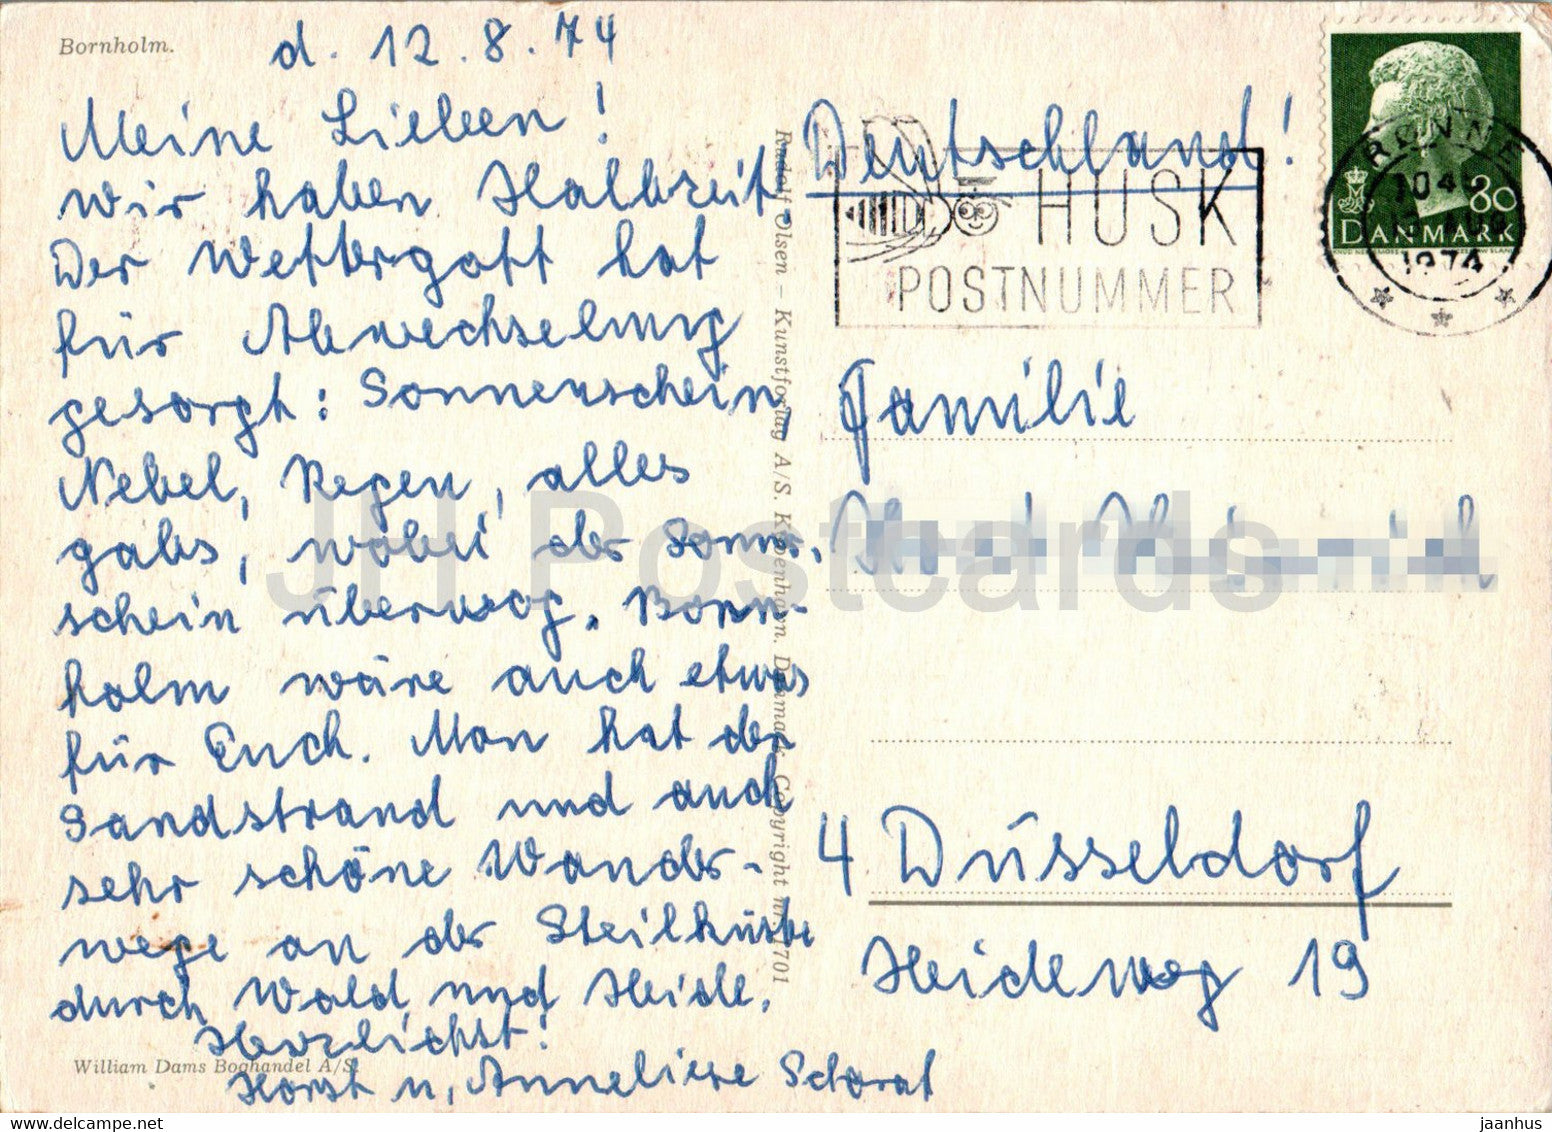 Bornholm.
d. 12.8.74
Meine Lieben!
wir haben Halbzeit.
Der Wettergott hat
für Abwechselung
gesorgt: Sonnenschein,
Nebel, Regen, alles
gabs, wobei der Sonnen-
schein überwog. Born-
holm wäre auch etwas
für Euch. Man hat den
Sandstrand und auch
sehr schöne Wander-
wege an der Steilküste
durch Wald und Heide.
Herzlichst!
Horst u. Anneliese
William Dams Boghandel A/S.
Rudolf Olsen – Kunstforlag A/S. Kobenhavn. Danmark. Copyright nr. 1701
Deutschland!
HUSK
POSTNUMMER
RØNNE
AUG
1974
80
DANMARK
Familie
4 Düsseldorf
Heideweg 19
JH Postcards
www.delcampe.net
jaanhus